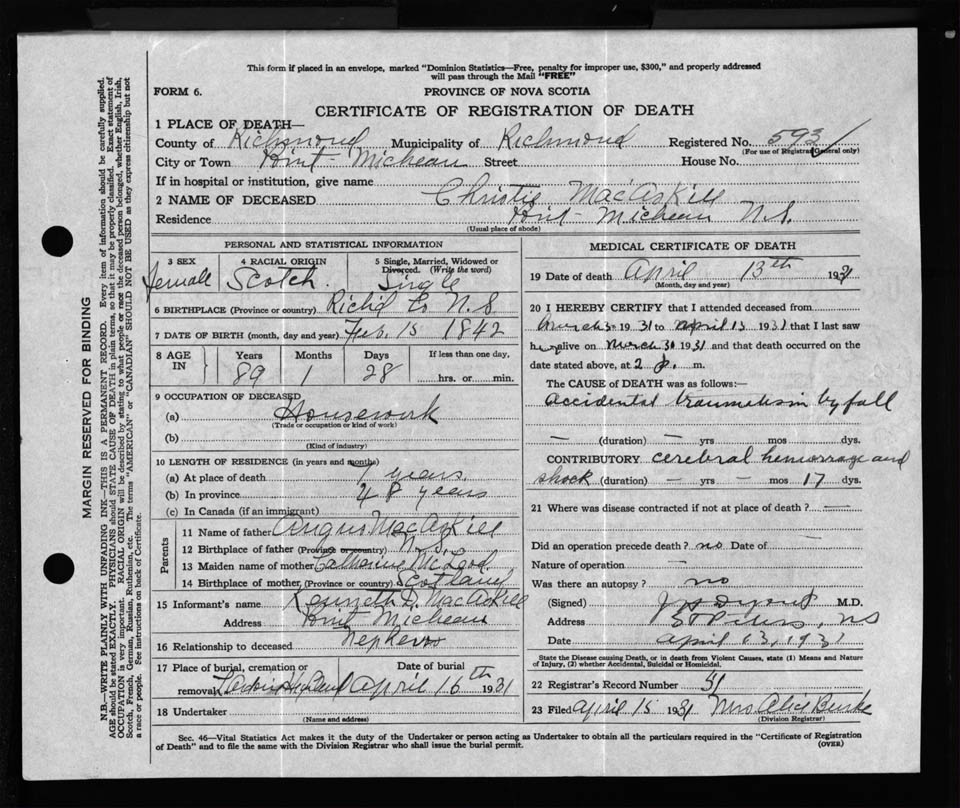 This form if placed in an envelope, marked "Dominion Statistics—Free, penalty for improper use, $300," and properly addressed
will pass through the Mail "FREE"
FORM 6.
PROVINCE OF NOVA SCOTIA
CERTIFICATE OF REGISTRATION OF DEATH
1 PLACE OF DEATH—
County of Richmond Municipality of Richmond Registered No. 593
(For use of Registrar General only)
City or Town Point Micheau Street House No.
If in hospital or institution, give name
2 NAME OF DECEASED Christie MacAskill
Residence Point Micheau N.S.
(Usual place of abode)
PERSONAL AND STATISTICAL INFORMATION
3 SEX Female
4 RACIAL ORIGIN Scotch.
5 Single, Married, Widowed or Divorced. (Write the word) Single
6 BIRTHPLACE (Province or country) Rich'd Co N.S.
7 DATE OF BIRTH (month, day and year) Feb. 15 1842
8 AGE IN Years 89 Months 1 Days 28 If less than one day, hrs. or min.
9 OCCUPATION OF DECEASED
(a) Housework
(Trade or occupation or kind of work)
(b)
(Kind of industry)
10 LENGTH OF RESIDENCE (in years and months)
(a) At place of death years
(b) In province years
(c) In Canada (if an immigrant)
Parents
11 Name of father Angus MacAskill
12 Birthplace of father (Province or country) N.S.
13 Maiden name of mother Catharine McLeod
14 Birthplace of mother (Province or country) Scotland
15 Informant's name Kenneth D. MacAskill
Address Point Micheau
16 Relationship to deceased Nephew
17 Place of burial, cremation or removal
Date of burial April 16th 1931
18 Undertaker
(Name and address)
MEDICAL CERTIFICATE OF DEATH
19 Date of death April 13th 1931
(Month, day and year)
20 I HEREBY CERTIFY that I attended deceased from
March 1931 to April 13 1931 that I last saw
her alive on March 31 1931 and that death occurred on
date stated above, at 2 p. m.
The CAUSE of DEATH was as follows:—
accidental traumatism by fall
— (duration) — yrs mos dys.
CONTRIBUTORY cerebral hemorrage and
shock (duration) — yrs — mos 17 dys.
21 Where was disease contracted if not at place of death? —
Did an operation precede death? no Date of —
Nature of operation —
Was there an autopsy? no
(Signed) M.D.
Address St Peters, NS
Date April 13, 1931
State the Disease causing Death, or in death from Violent Causes, state (1) Means and Nature
of Injury, (2) whether Accidental, Suicidal or Homicidal.
22 Registrar's Record Number 31
23 Filed April 15 1931 Mrs Alice Burke
(Division Registrar)
Sec. 46—Vital Statistics Act makes it the duty of the Undertaker or person acting as Undertaker to obtain all the particulars required in the "Certificate of Registration
of Death" and to file the same with the Division Registrar who shall issue the burial permit.
(OVER)
MARGIN RESERVED FOR BINDING
N.B.—WRITE PLAINLY WITH UNFADING INK—THIS IS A PERMANENT RECORD. Every item of information should be carefully supplied.
AGE should be stated EXACTLY. PHYSICIANS should STATE CAUSE OF DEATH in plain terms, so that it may be properly classified. Exact statement of
OCCUPATION is very important. RACIAL ORIGIN will be described by stating to what people or race the deceased person belonged, whether English, Irish,
Scotch, French, German, Russian, Ruthenian, etc. The terms "AMERICAN" or "CANADIAN" SHOULD NOT BE USED as they express citizenship but not
a race or people. See instructions on back of Certificate.